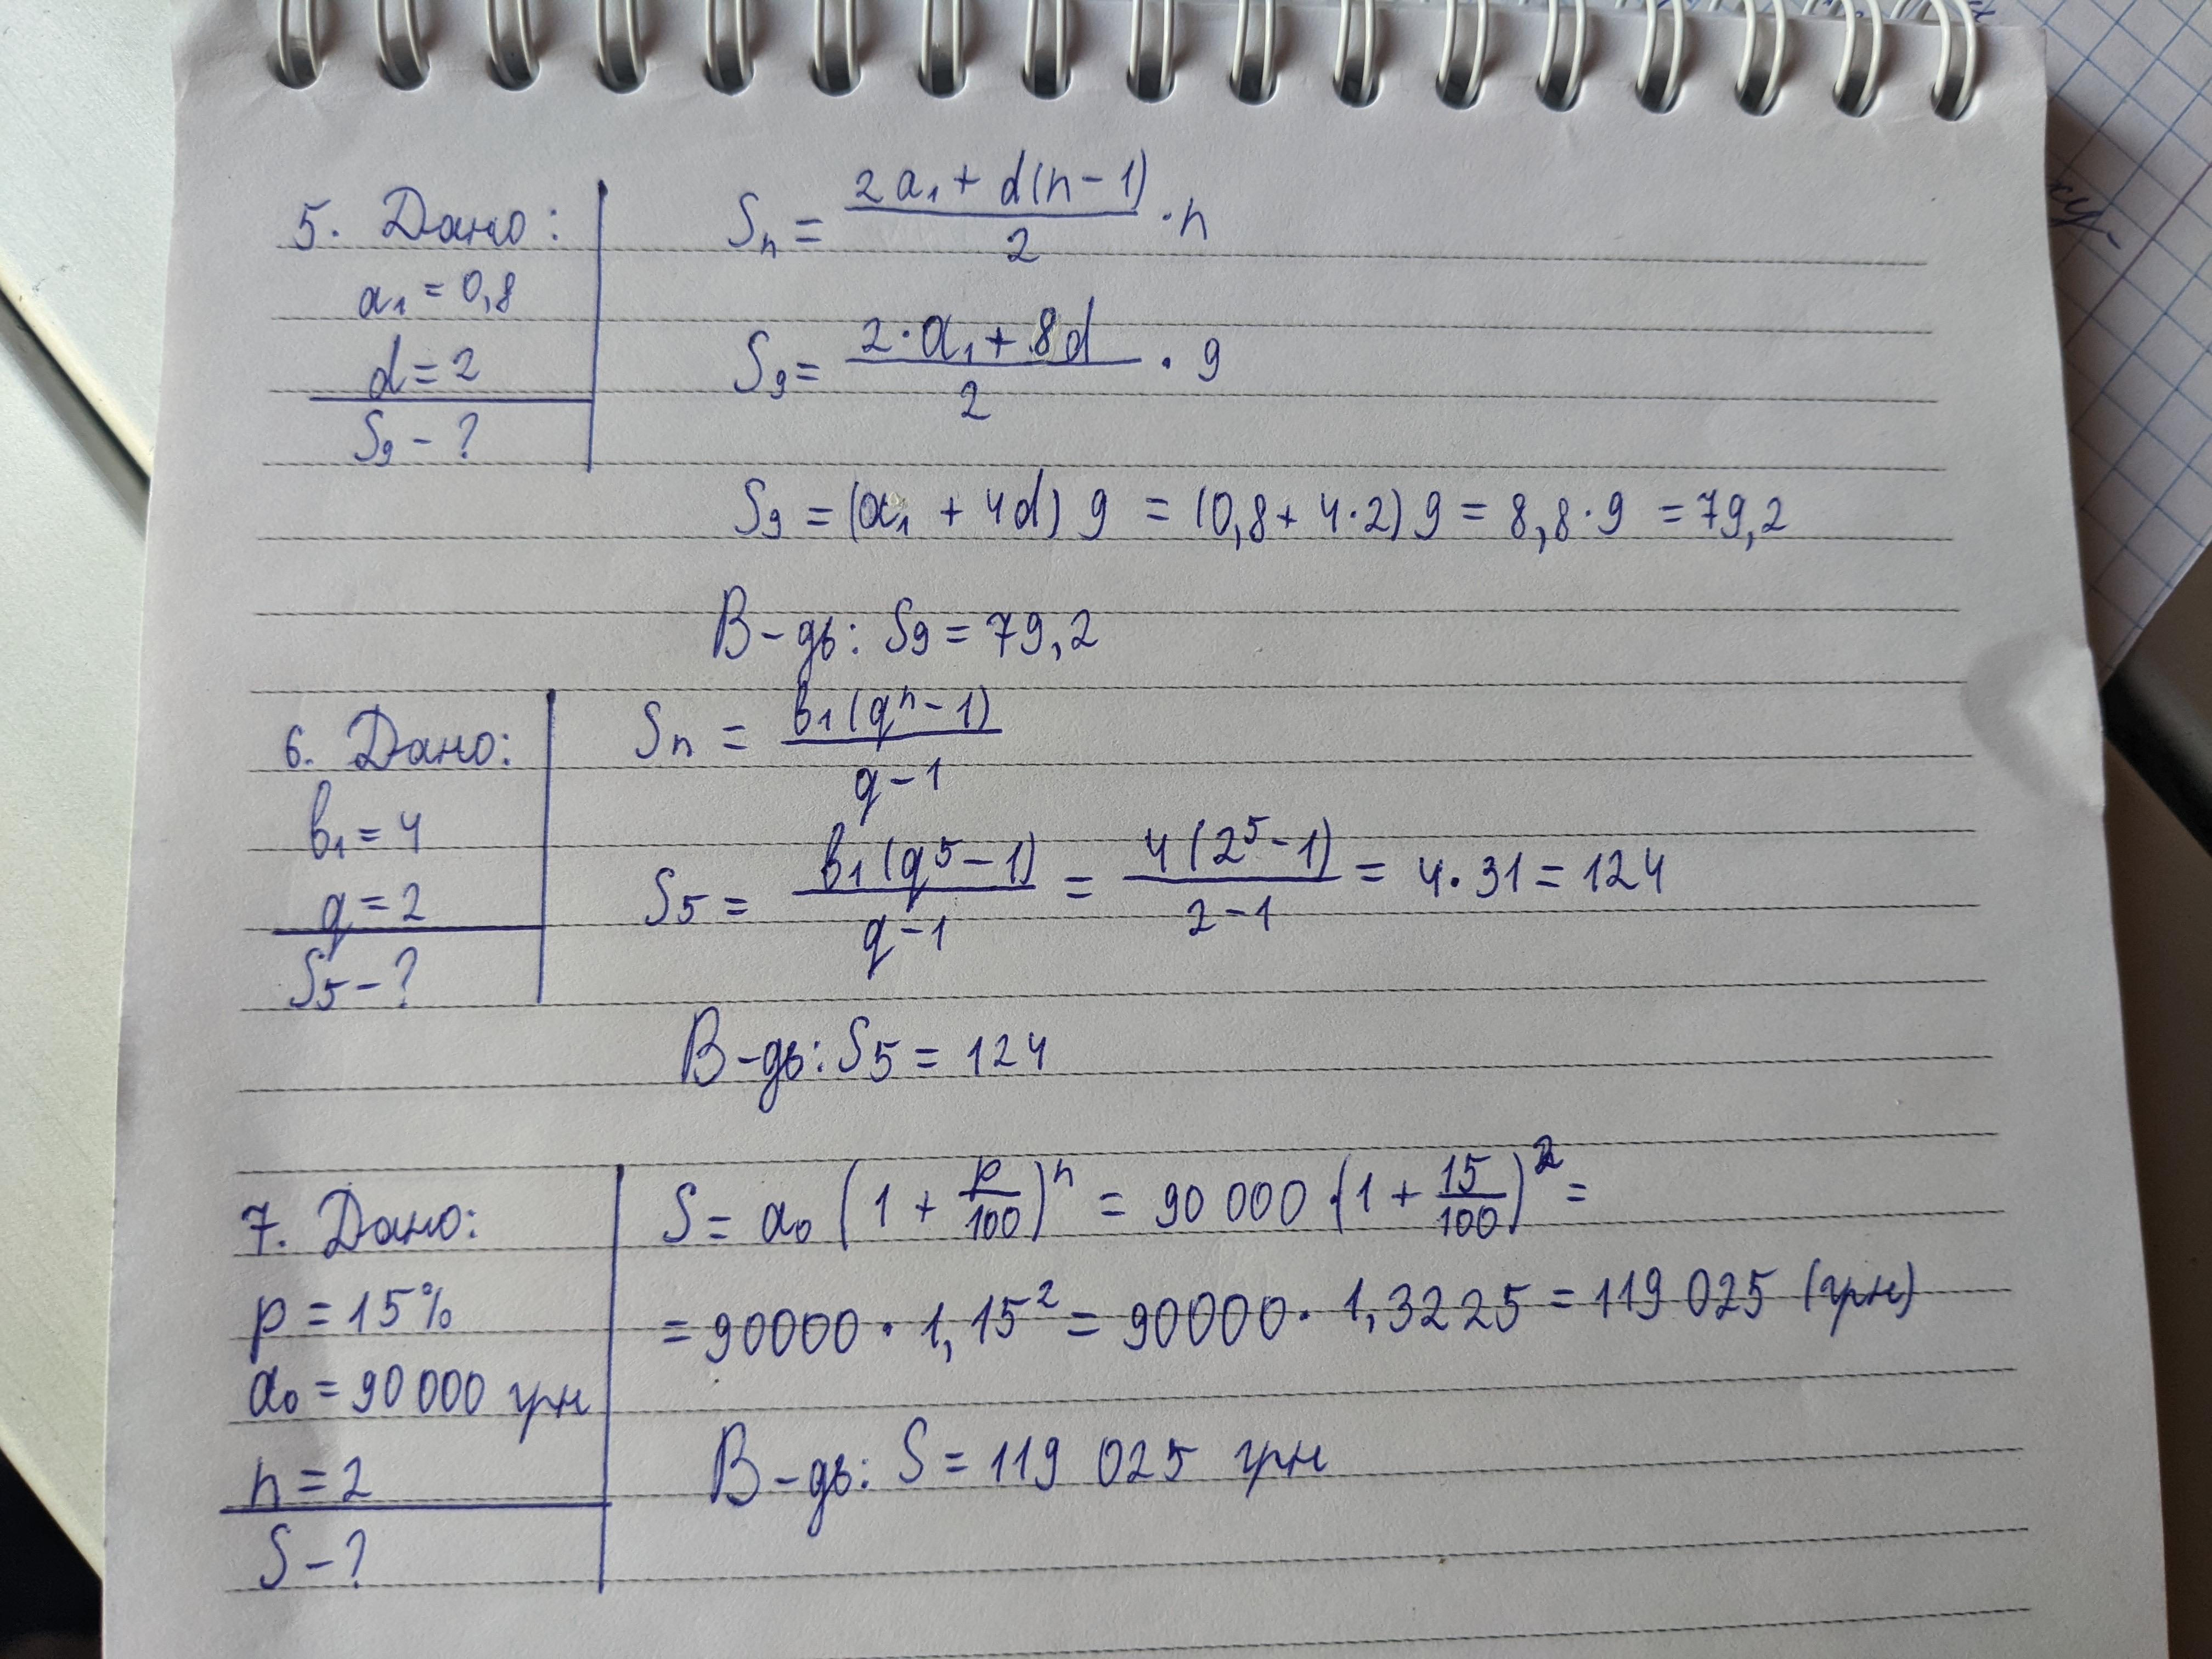 5. Дано:
a₁ = 0,8
d = 2
S₉ - ?
Sₙ = (2a₁ + d(n - 1))/2 · n
S₉ = (2 · a₁ + 8d)/2 · 9
S₉ = (a₁ + 4d) 9 = (0,8 + 4·2) 9 = 8,8 · 9 = 79,2
В-дь: S₉ = 79,2
6. Дано:
b₁ = 4
q = 2
S₅ - ?
Sₙ = b₁(qⁿ - 1)/(q - 1)
S₅ = b₁(q⁵ - 1)/(q - 1) = 4(2⁵ - 1)/(2 - 1) = 4 · 31 = 124
В-дь: S₅ = 124
7. Дано:
p = 15%
a₀ = 90 000 грн
n = 2
S - ?
S = a₀ (1 + p/100)ⁿ = 90 000 · (1 + 15/100)² =
= 90000 · 1,15² = 90000 · 1,3225 = 119 025 (грн)
В-дь: S = 119 025 грн